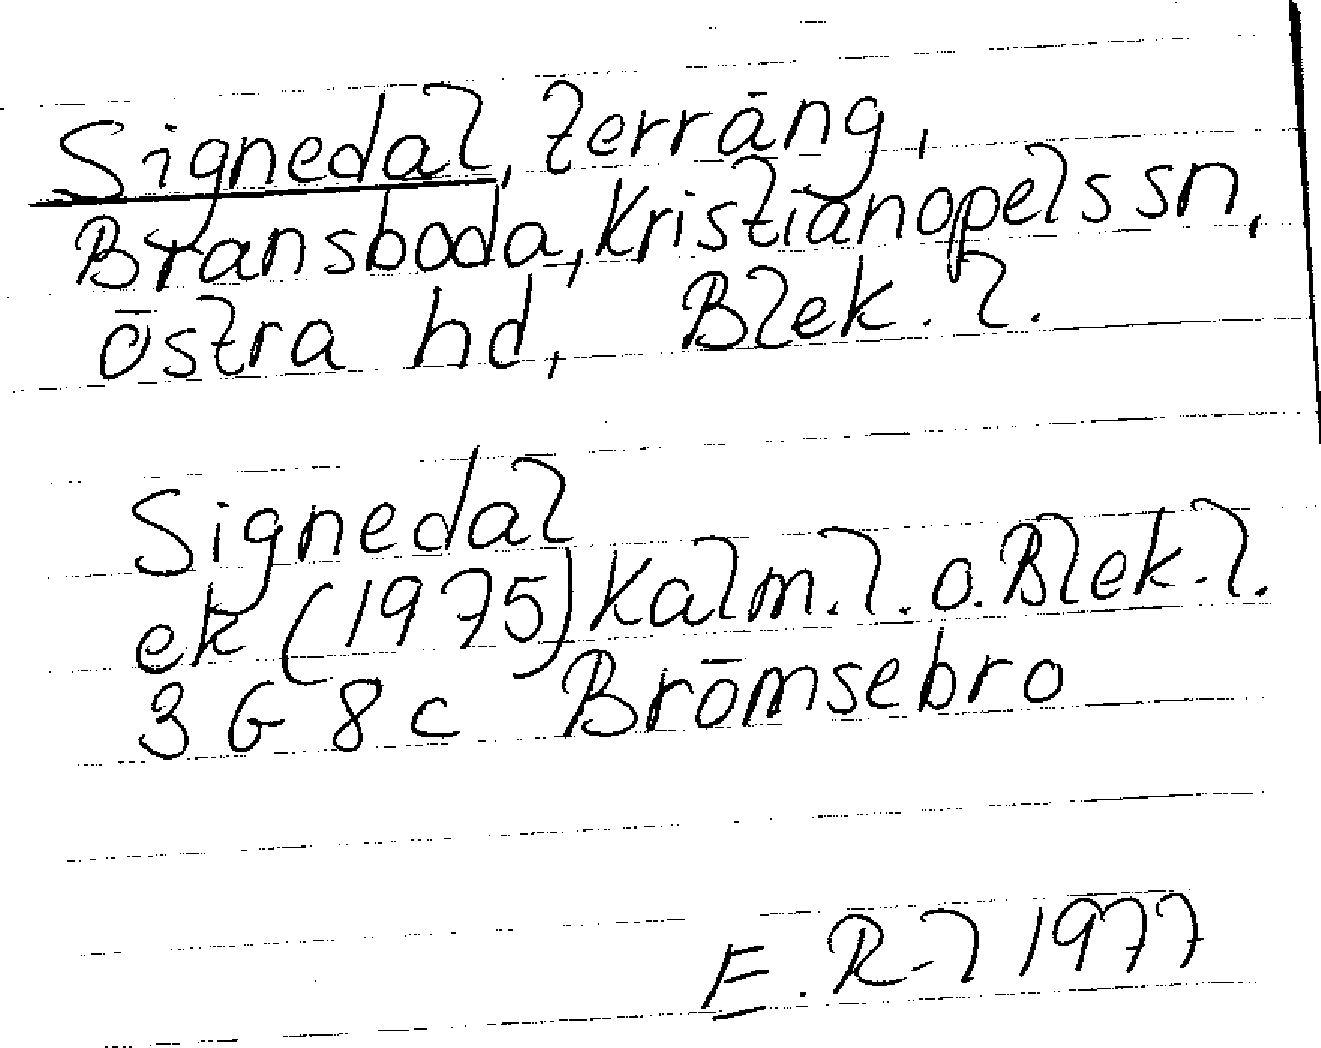 Signedal, terräng,
Bransboda, Kristianopels sn,
Östra hd, Blek. l.
Signedal
ek (1975) Kalm. l. o. Blek. l.
3 G 8 c Brömsebro
E. R-7 1977